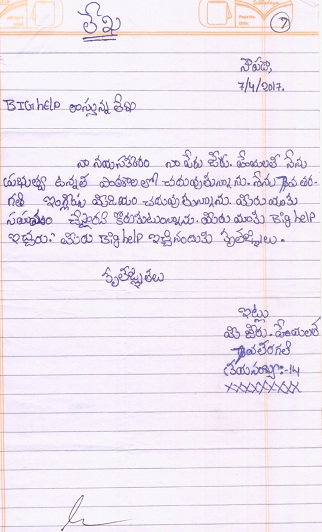 లేఖ
7
నౌపడా,
7/4/2017.
BIG help రాస్తున్న లేఖ
నా నమస్కారం నా పేరు జోరు. హేమలత నేను
ప్రభుత్వ ఉన్నత పాఠశాలలో చదువుతున్నాను. నేను 7వ తర-
గతి ఇంగ్లీషు మీడియం చదువుతున్నాను. మీరు మాకు
సహాయం చేస్తారని కోరుకుంటున్నాను. మీరు మాకు Big help
ఇచ్చారు. మీరు Big help ఇచ్చినందుకు కృతజ్ఞతలు.
కృతజ్ఞతలు
ఇట్లు
మీ జోరు. హేమలత
7వ తరగతి
క్రమసంఖ్య:-14
xxxxxxxxx